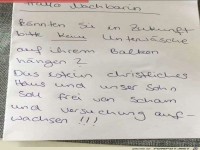 Hallo Nachbarin
Könnten Sie in Zukunft
bitte keine Unterwäsche
auf ihrem Balkon
hängen ?
Das ist ein christliches
Haus und unser Sohn
soll frei von Scham
und Versuchung auf-
wachsen !!!